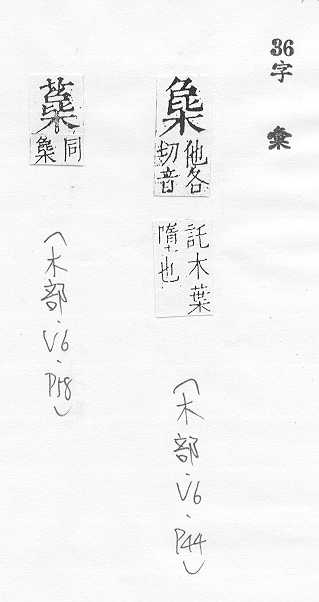 36字 彙
他各
切音
託木葉
墮也
(木部.V6.P44)
同
(木部.V6.P58)